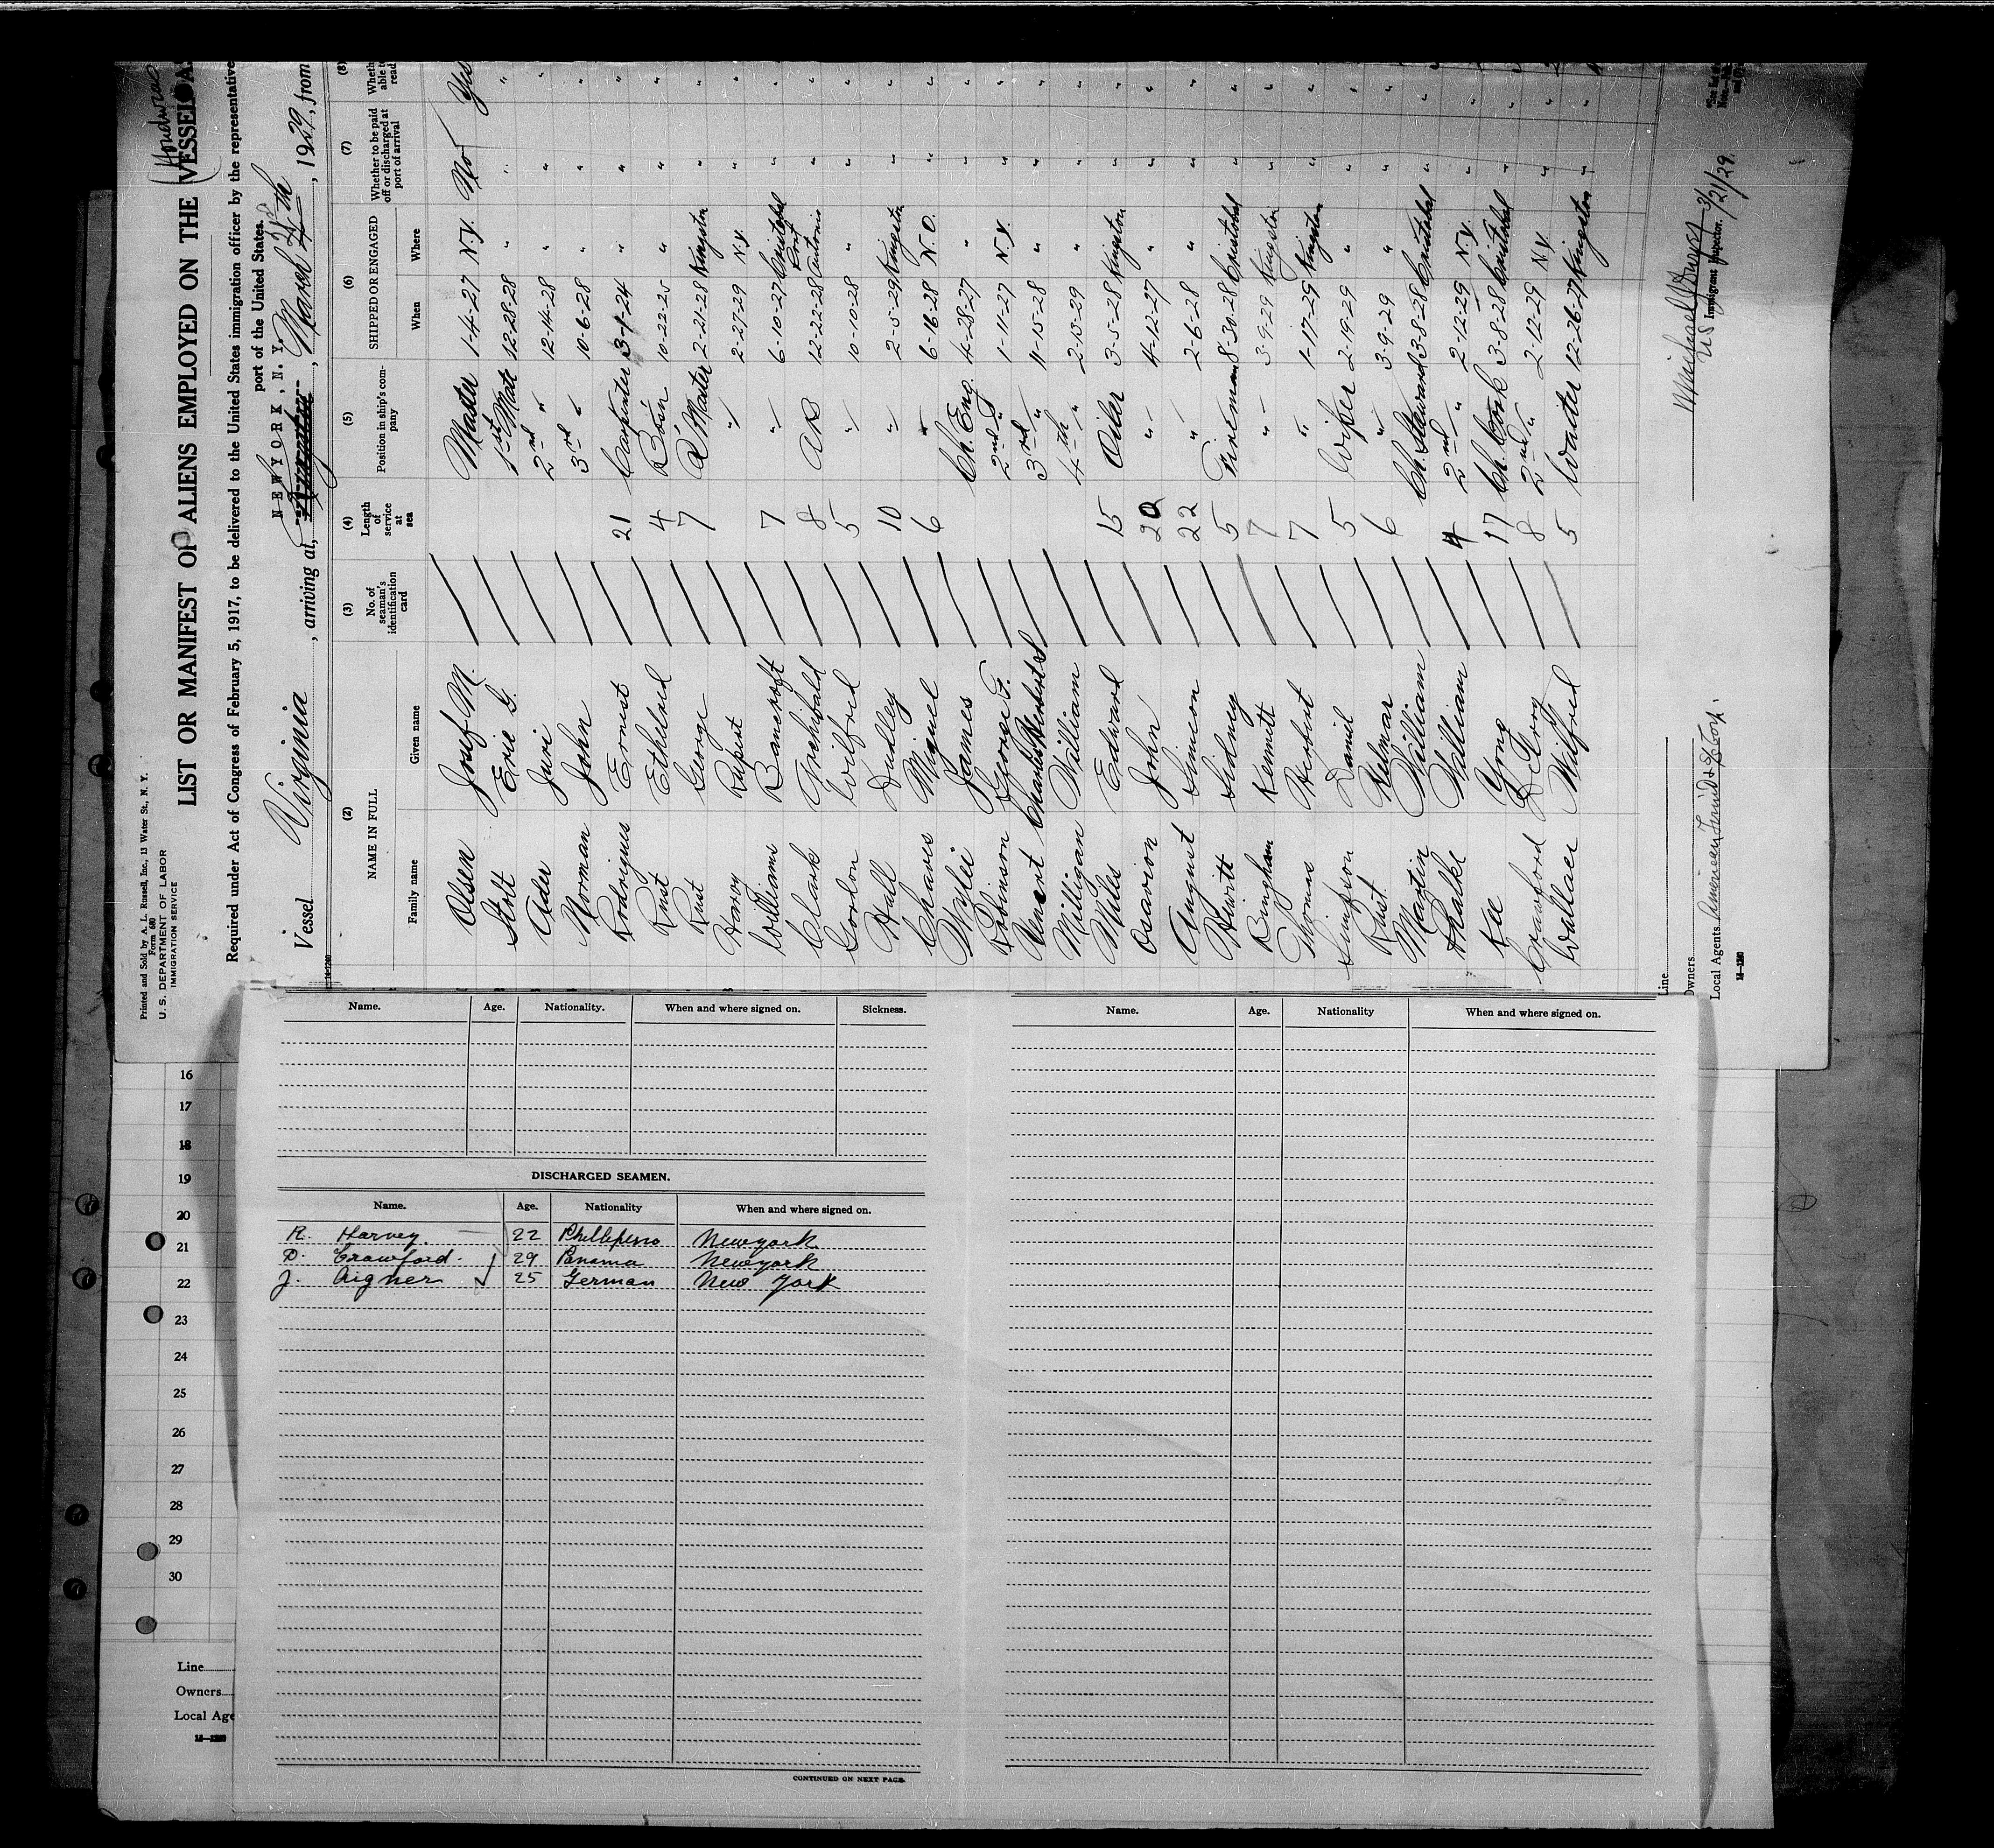 Printed and Sold by A. L. Russell, Inc., 13 Water St., N. Y.
Form 680
U. S. DEPARTMENT OF LABOR
IMMIGRATION SERVICE
(Honduras
LIST OR MANIFEST OF ALIENS EMPLOYED ON THE VESSEL AS
Required under Act of Congress of February 5, 1917, to be delivered to the United States immigration officer by the representative
port of the United States.
Vessel Virginia, arriving at, NEW YORK, N. Y., March, 1929, from
14-1240
(2) (3) (4) (5) (6) (7) (8)
NAME IN FULL
Family name Given name
No. of seaman's identification card
Length of service at sea
Position in ship's company
SHIPPED OR ENGAGED
When Where
Whether to be paid off or discharged at port of arrival
Wheth able to read
Olsen Josef M. Master 1-4-27 N.Y. No Yes
Stolt Eric G. 1st Mate 12-28-28 " " "
Ader Juri 2nd " 12-14-28 " " "
Norman John 3rd " 10-6-28 " " "
Rodrigues Ernest 21 Carpenter 3-1-24 " " "
Rust Ethelred 4 Bosn 10-22-25 " " "
Rust George 7 Q Master 2-21-28 Kingston " "
Harvy Rupert " 2-27-29 N.Y. " "
Williams Bancroft 7 " 6-10-27 Cristobal " "
Clark Archibald 8 AB 12-22-28 Port Antonio " "
Gordon Wilfred 5 " 10-10-28 " " "
Hull Dudley 10 " 2-5-29 Kingston " "
Chaves Miguel 6 " 6-16-28 N.O. " "
Wylie James Ch. Eng. 4-28-27 " " "
Robinson George F. 2nd " 1-11-27 N.Y. " "
Charles Herbert S 3rd " 11-15-28 " " "
Milligan William 4th " 2-13-29 " " "
Miles Edward 15 Oiler 3-5-28 Kingston " "
Osavion John 20 " 4-12-27 " " "
August Simeon 22 " 2-6-28 " " "
Hewitt Sidney 5 Fireman 8-30-28 Cristobal " "
Bingham Kemmitt 7 " 3-9-29 Kingston " "
Thomas Herbert 7 " 1-17-29 Kingston " "
Simpson Daniel 5 Wiper 2-19-29 " " "
Rust Helmar 6 " 3-9-29 " " "
Martin William Ch. Steward 3-8-28 Cristobal " "
William 4 2nd " 2-12-29 N.Y. " "
Kee Yong 17 Ch. Cook 3-8-28 Cristobal " "
Crawford 8 2nd " 2-12-29 N.Y. " "
Wallace Wilfred 5 Waiter 12-26-27 Kingston " "
Line
Owners
Local Agents
14-1240
Immigrant Inspector. 3/21/29.
Name. Age. Nationality. When and where signed on. Sickness.
DISCHARGED SEAMEN.
Name. Age. Nationality When and where signed on.
R. Harvey. 22 Phillepino Newyork
D. Crawford. 29 Panama Newyork
J. Aigner 25 German New York
CONTINUED ON NEXT PAGE.
Name. Age. Nationality When and where signed on.
16
17
18
19
20
21
22
23
24
25
26
27
28
29
30
Line
Owners
Local Age
14-1240